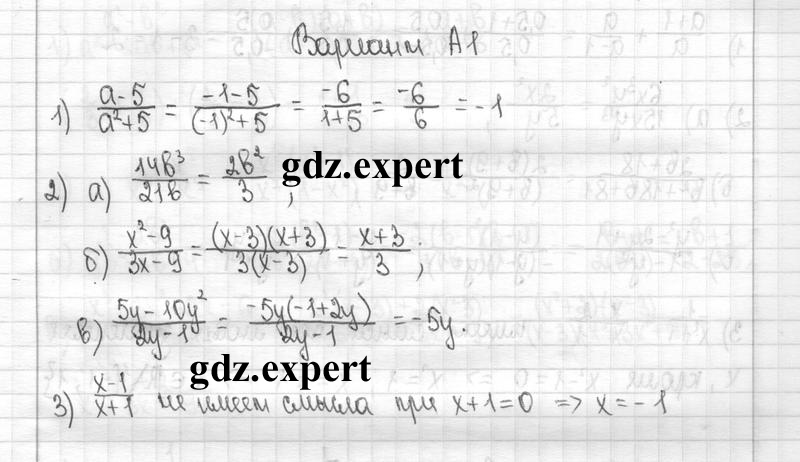 Вариант А1
1) (a-5)/(a²+5) = (-1-5)/((-1)²+5) = -6/(1+5) = -6/6 = -1
2) а) 14b³/21b = 2b²/3 ; gdz.expert
б) (x²-9)/(3x-9) = (x-3)(x+3)/3(x-3) = (x+3)/3 ;
в) (5y-10y²)/(2y-1) = -5y(-1+2y)/(2y-1) = -5y
gdz.expert
3) (x-1)/(x+1) не имеет смысла при x+1=0 => x=-1